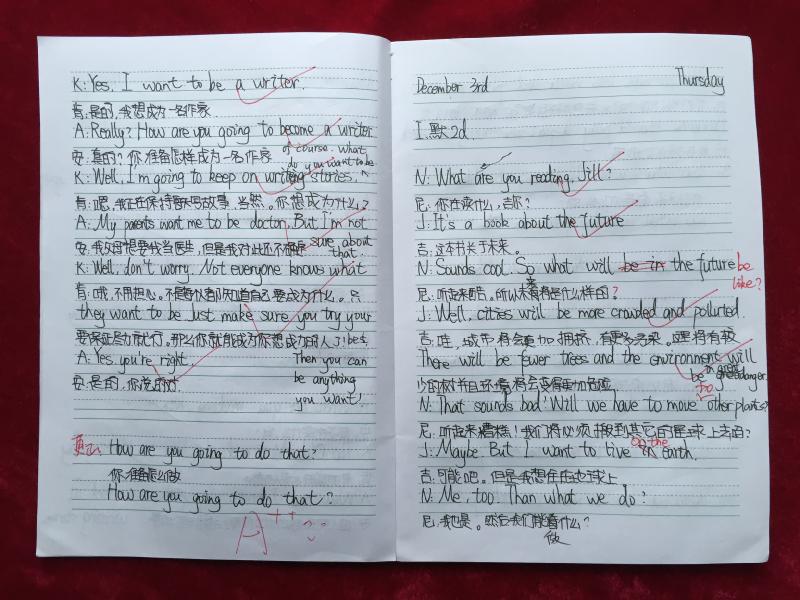 K: Yes, I want to be a writer.
肯: 是的,我想成为一名作家
A: Really? How are you going to become a writer
安: 真的? 你准备怎样成为一名作家
of course. What
do you want to be
K: Well, I'm going to keep on writing stories.
肯: 嗯,我正在保持写故事,当然。你想成为什么?
A: My parents want me to be doctor, But I'm not
sure about
that.
安: 我父母想要我当医生,但是我对此还不确定
K: Well, don't worry. Not everyone knows what
肯: 哦,不用担心。不是每个人都知道自己要成为什么。只
they want to be Just make sure you try your
best.
要保证尽力就行。那么你就能成为你想成为的人!
A: Yes you're right.
Then you can
be anything
you want!
安: 是的,你说的对
更正 How are you going to do that?
你准备怎么做
How are you going to do that?
A++
December 3rd Thursday
I. 默2d
N: What are you reading, Jill?
尼: 你在读什么,吉尔?
J: It's a book about the future
吉: 这本书关于未来。
N: Sounds cool. So what will be in the future be
like?
尼: 听起来酷。所以未来将是什么样的?
J: Well, cities will be more crowded and polluted.
吉: 哇,城市将会更加拥挤,
There will be fewer trees and the environment will
be in great danger.
少的树并且环境将会变得更加危险
to
N: That sounds bad! Will we have to move other plants?
尼: 听起来糟糕!我们将必须搬到其它的星球上去吗?
on the
J: Maybe. But I want to live in earth.
吉: 可能吧。但是我想住在地球上
N: Me, too. Than what we do?
尼: 我也是。然后我们能做什么?
做